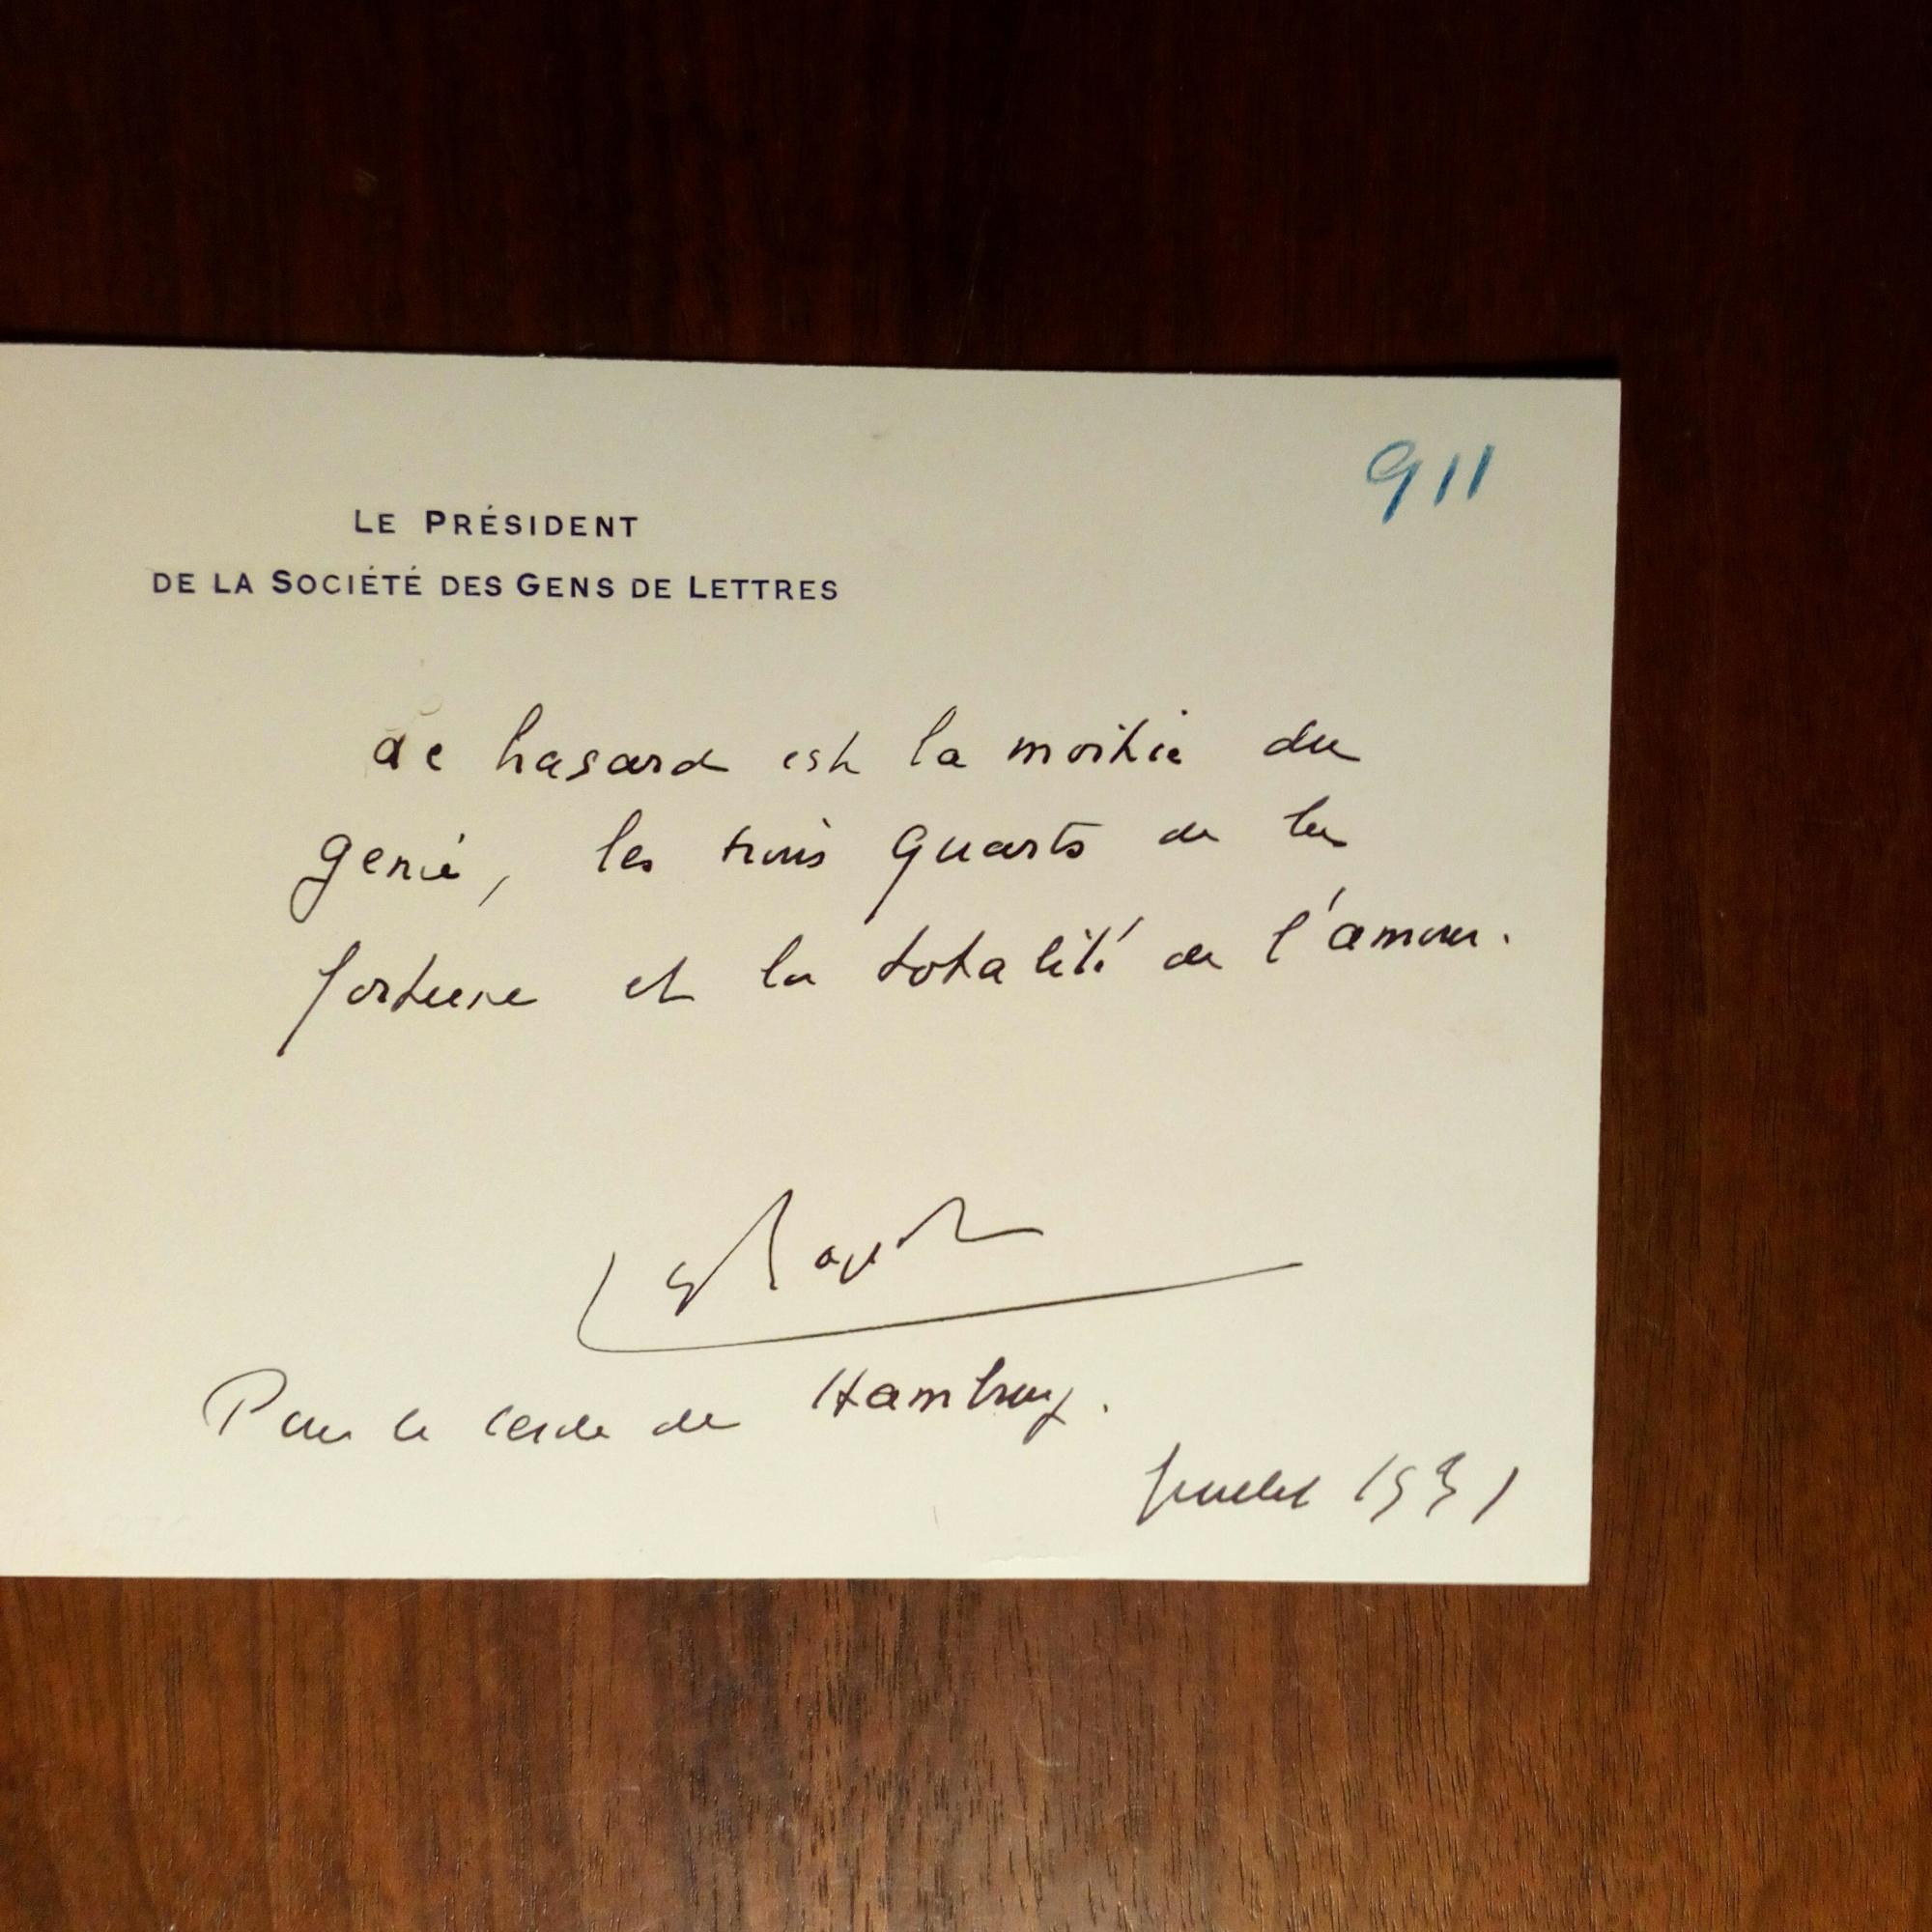 911
LE PRÉSIDENT
DE LA SOCIÉTÉ DES GENS DE LETTRES
Le hasard est la moitié du
génie, les trois quarts de la
fortune et la totalité de l'amour.
Pour le cercle de Hambourg.
Juillet 1931